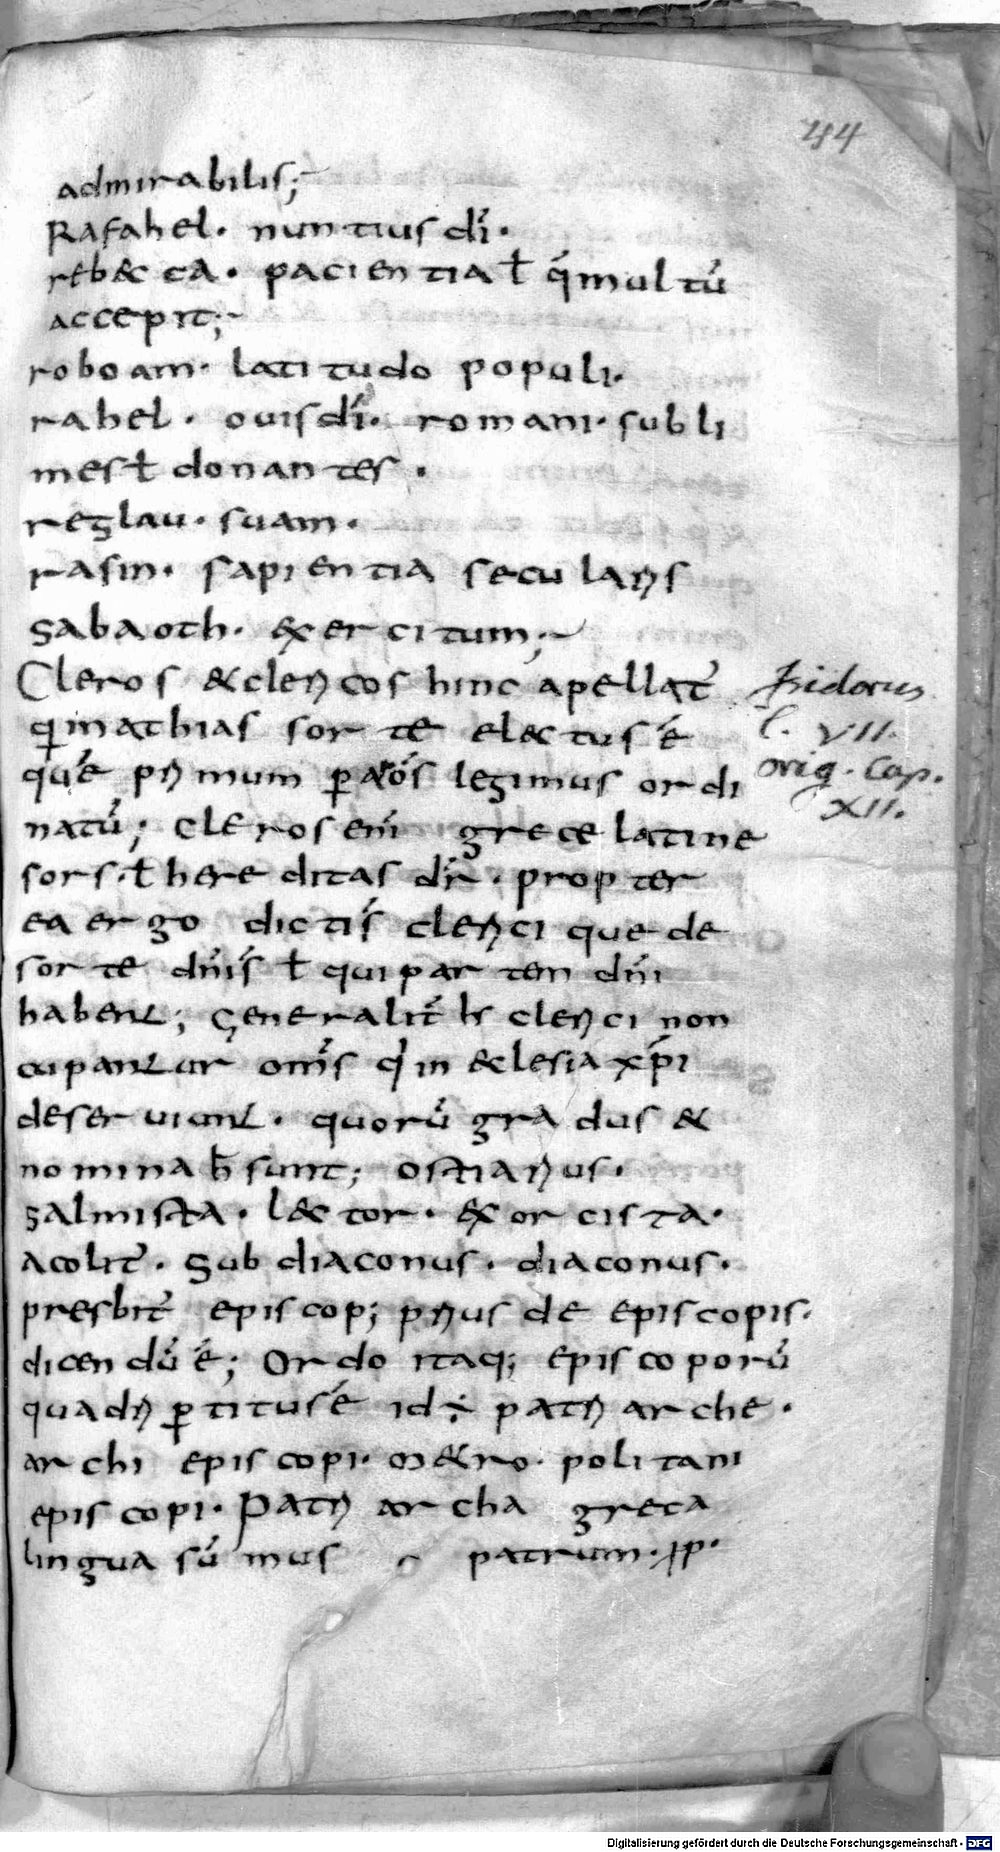 44
admirabilis;
Rafahel. nuntius dī.
reb&ca. pacientia ł q̄ multū
accepit;
roboam. latitudo populi.
rahel. ouis dī. romani. subli
mes ł donantes.
reglau. suam.
rasin. sapientia secularis
sabaoth. exercitum;
Cleros & clericos hinc apellat̄
q̇ mathias sorte el&tus ē
quē primum ꝑ apōs legimus ordi
natū; cleros enī grece latine
sors. ł hereditas dr̄. propter
ea ergo dicti s̄ clerici que de
sorte dn̄i s̄ ł qui partem dn̄i
habent; generalit̄ h clerici non
cupantur om̄s q̇ in &clesia xp̄i
deseruiunt. quorū gradus &
nomina h̄ sunt; ostiarius.
salmista. l&tor. exorcista.
acolit̄. subdiaconus. diaconus.
presbit̄ episcop; prius de episcopis.
dicendū ē; Ordo itaq; episcoporū
quadriꝑtitus ē id ÷ patriarche.
archiepiscopi. m&ro. politani
episcopi. Patriarcha greca
lingua sūmus patrum. pp.
Isidorus
l. VII.
orig. Cap.
XII.
Digitalisierung gefördert durch die Deutsche Forschungsgemeinschaft - DFG